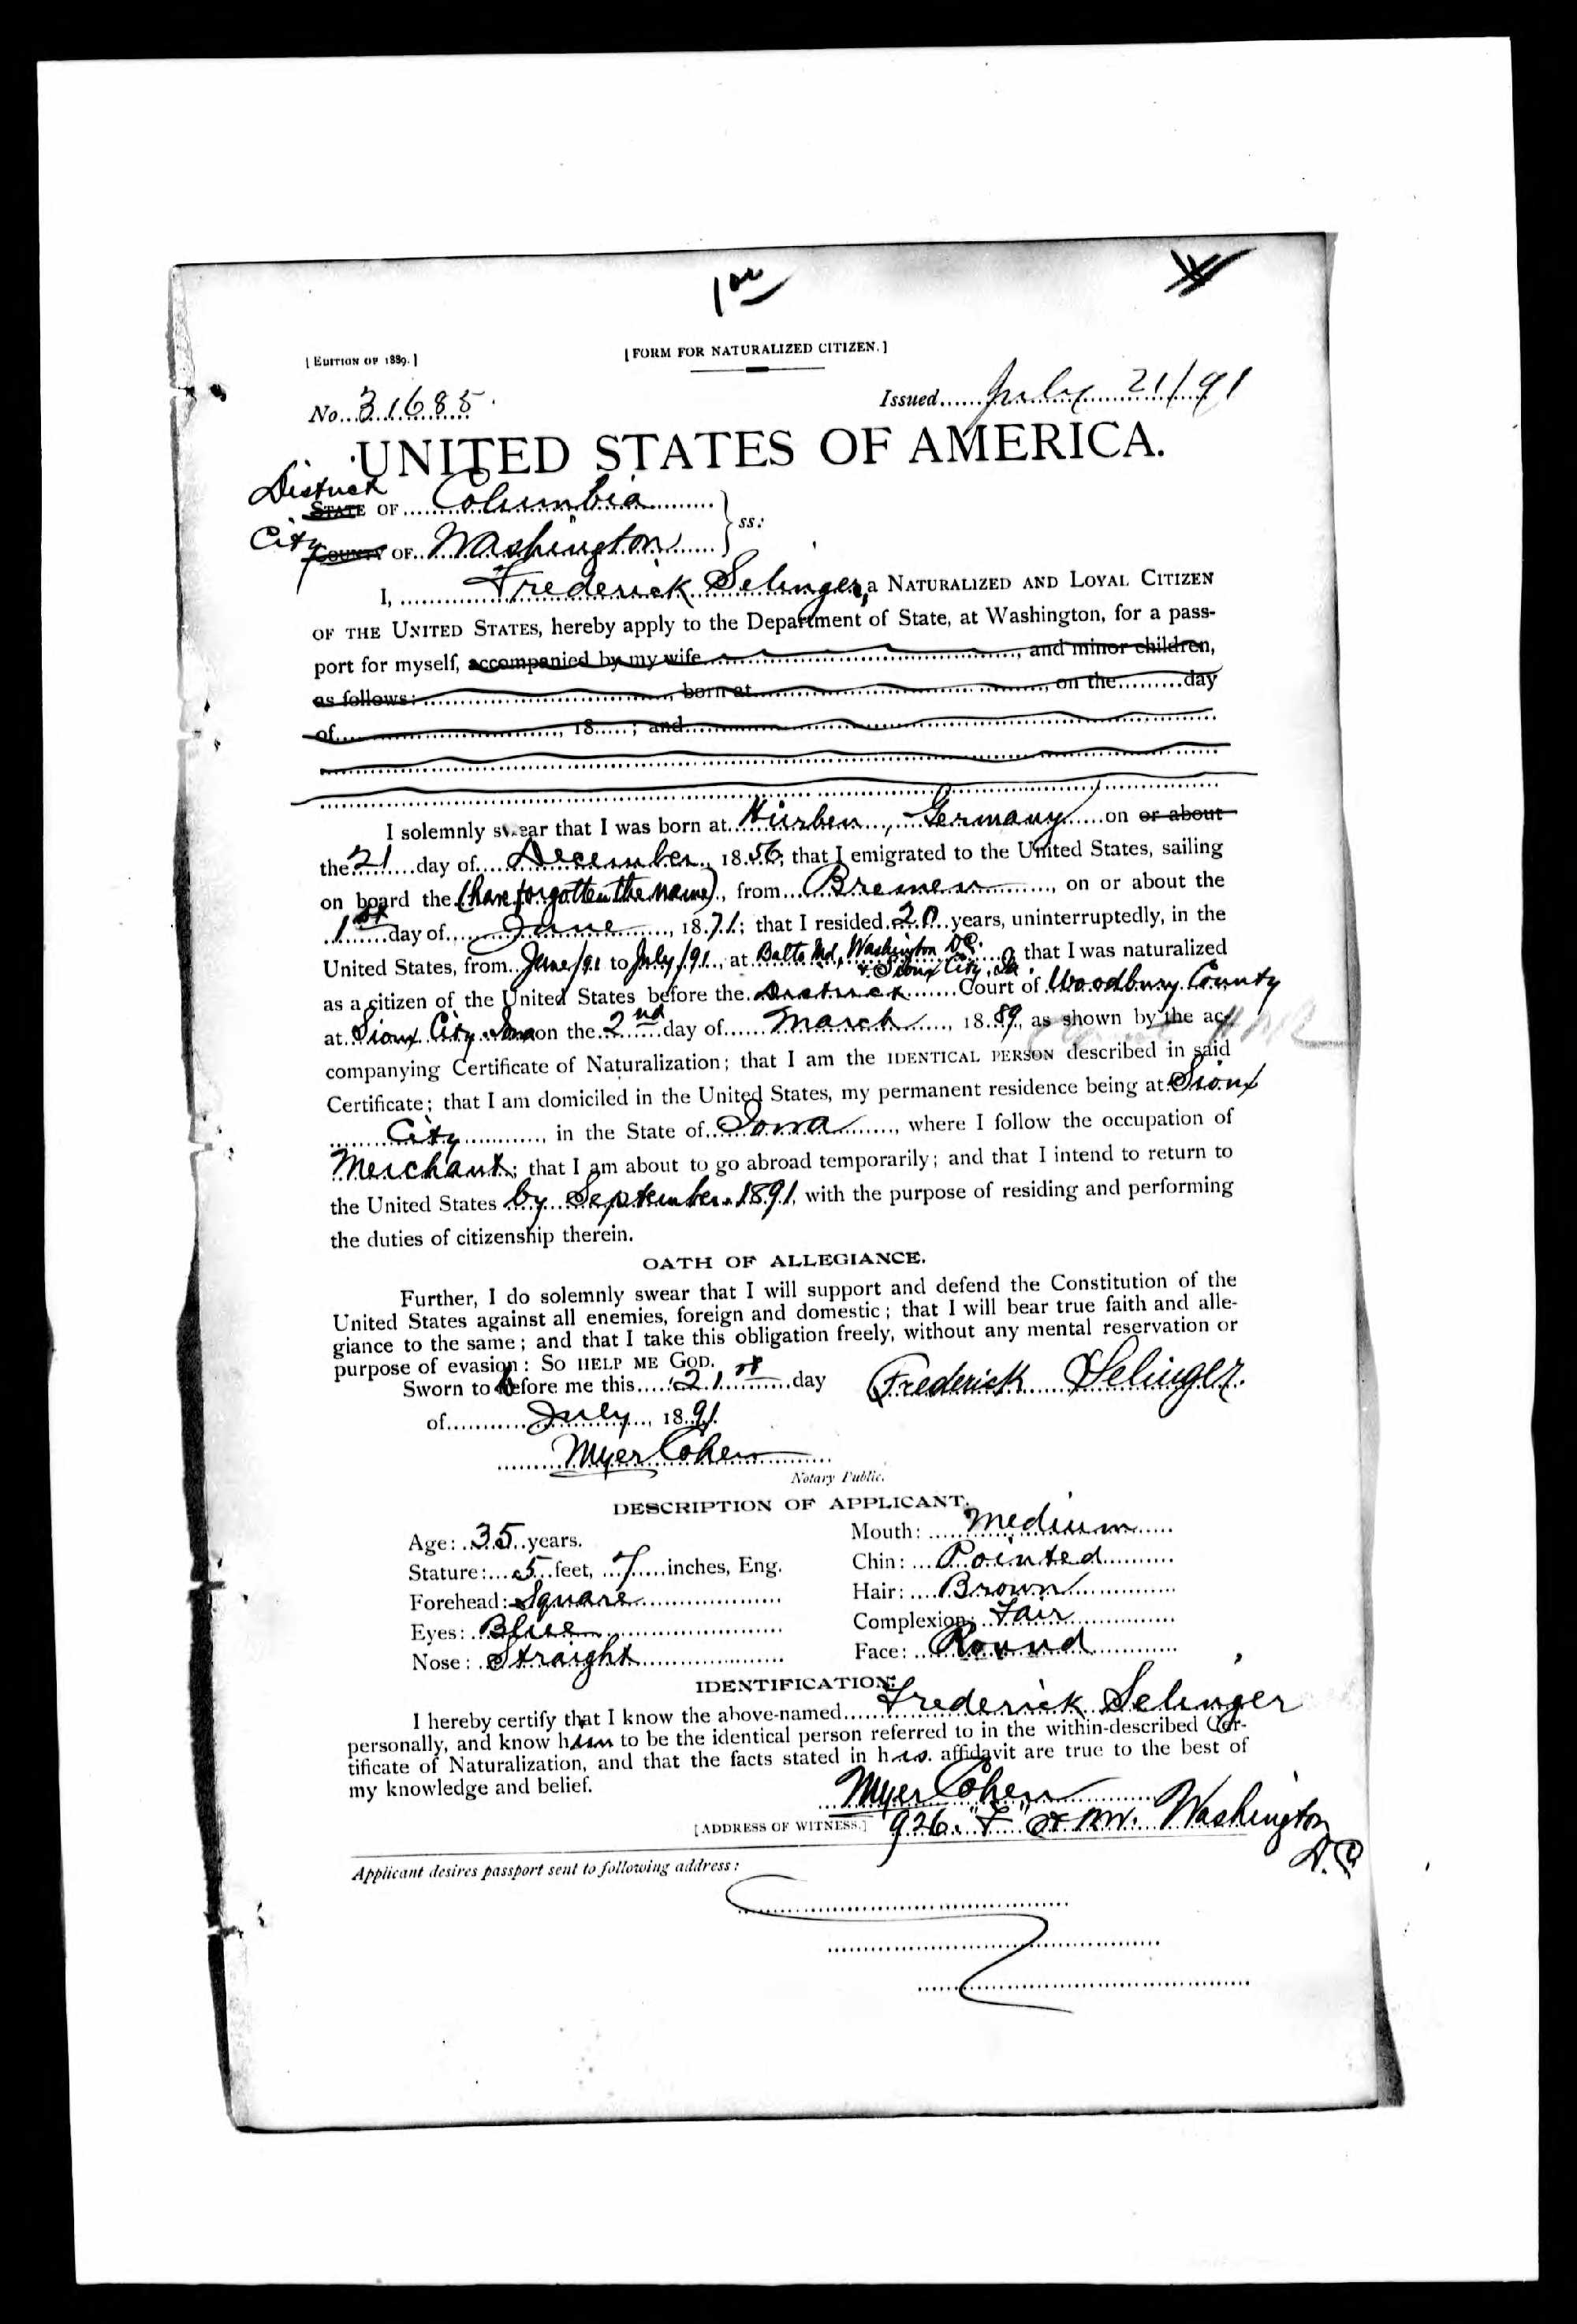 1 00
[EDITION OF 1889.]
[FORM FOR NATURALIZED CITIZEN.]
No. 31685.
Issued July 21/91
UNITED STATES OF AMERICA.
District
STATE OF Columbia
ss:
City
COUNTY OF Washington
I, Frederick Selinger, a NATURALIZED AND LOYAL CITIZEN
OF THE UNITED STATES, hereby apply to the Department of State, at Washington, for a pass-
port for myself, accompanied by my wife, and minor children,
as follows: , born at , on the day
of , 18 ; and
I solemnly swear that I was born at Hürben, Germany on or about
the 21 day of December, 1856; that I emigrated to the United States, sailing
on board the (have forgotten the name), from Bremen, on or about the
1st day of June, 1871; that I resided 20 years, uninterruptedly, in the
United States, from June/91 to July/91, at Balto Md, Washington D.C. & Sioux City, Ia; that I was naturalized
as a citizen of the United States before the District Court of Woodbury County
at Sioux City Iowa on the 2nd day of March, 1889, as shown by the ac-
companying Certificate of Naturalization; that I am the IDENTICAL PERSON described in said
Certificate; that I am domiciled in the United States, my permanent residence being at Sioux
City, in the State of Iowa, where I follow the occupation of
Merchant; that I am about to go abroad temporarily; and that I intend to return to
the United States by September 1891, with the purpose of residing and performing
the duties of citizenship therein.
OATH OF ALLEGIANCE.
Further, I do solemnly swear that I will support and defend the Constitution of the
United States against all enemies, foreign and domestic; that I will bear true faith and alle-
giance to the same; and that I take this obligation freely, without any mental reservation or
purpose of evasion: SO HELP ME GOD.
Sworn to before me this 21st day
Frederick Selinger.
of July, 1891.
Myer Cohen
Notary Public.
DESCRIPTION OF APPLICANT.
Age: 35 years.
Mouth: Medium
Stature: 5 feet, 7 inches, Eng.
Chin: Pointed
Forehead: Square
Hair: Brown
Eyes: Blue
Complexion: Fair
Nose: Straight
Face: Round
IDENTIFICATION.
I hereby certify that I know the above-named Frederick Selinger
personally, and know him to be the identical person referred to in the within-described Cer-
tificate of Naturalization, and that the facts stated in his affidavit are true to the best of
my knowledge and belief.
Myer Cohen
[ADDRESS OF WITNESS.] 926 "F" St NW. Washington
D.C.
Applicant desires passport sent to following address: